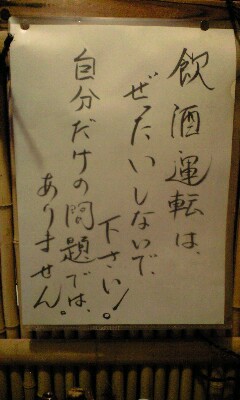 飲酒運転は、
ぜったいしないで、
下さい!。
自分だけの問題では、
ありません。